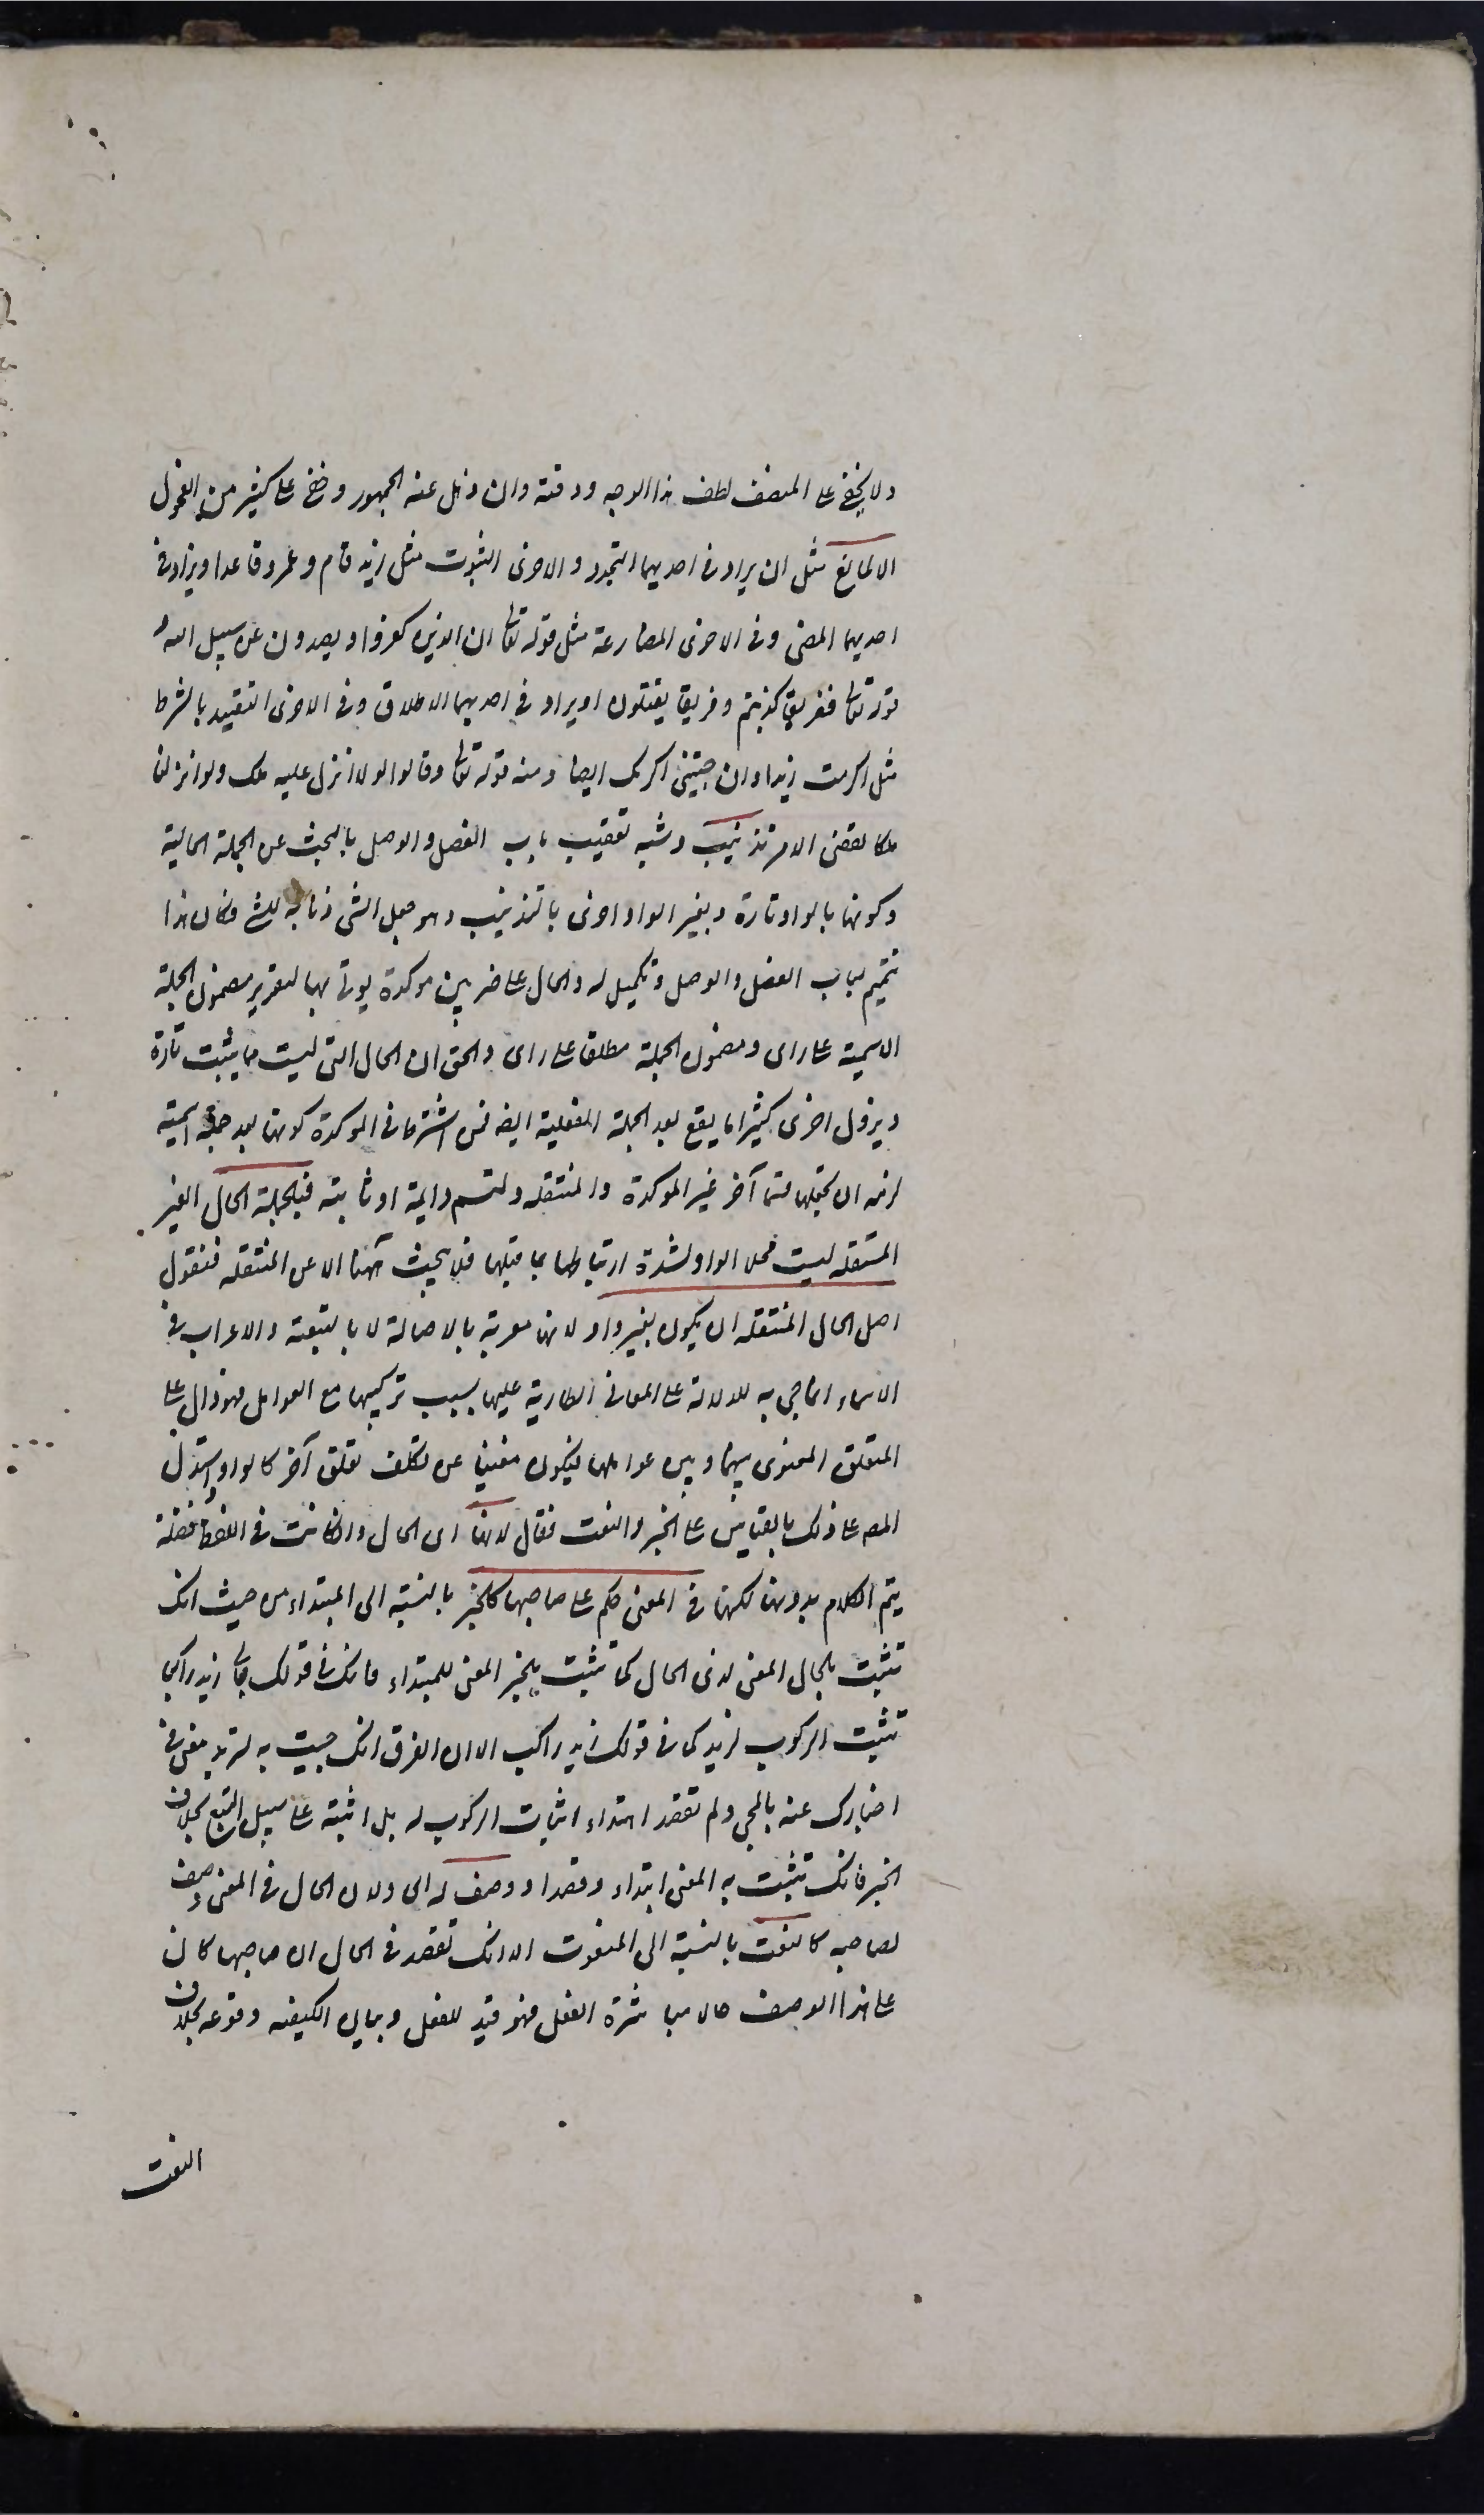 ولا يخفى على المنصف لطف هذا الوجه ودقته وان ذهل عنه الجمهور وخفى على كثير من الفحول
الا لمانع مثل ان يراد فى احديهما التجدد والاخرى الثبوت مثل زيد قام وعمرو قاعد او يراد فى
احديهما المضى وفى الاخرى المضارعة مثل قوله تعالى ان الذين كفروا ويصدون عن سبيل الله و
قوله تعالى ففريقا كذبتم وفريقا يقتلون او يراد فى احديهما الاطلاق وفى الاخرى التقييد بالشرط
مثل اكرمت زيدا وان جئتنى اكرمك ايضا ومنه قوله تعالى وقالوا لولا انزل عليه ملك ولو انزلنا
ملكا لقضى الامر تذنيب وشبه تعقيب باب الفصل والوصل بالبحث عن الجملة الحالية
وكونها بالواو تارة وبغير الواو اخرى بالتذنيب وهو جعل الشى ذنابه للشى فكان هذا
تتميم لباب الفصل والوصل وتكميل له والحال على ضربين موكدة يوتى بها لتقرير مضمون الجملة
الاسمية على راى ومضمون الجملة مطلقا على راى والحق ان الحال التى ليست مما يثبت تارة
ويزول اخرى كثيرا ما يقع بعد الجملة الفعلية ايضا فمن اشترط فى الموكدة كونها بعد جملة اسمية
لزمه ان يجعلها قسما آخر غير الموكدة والمنتقله ولتسم دايمة او ثابتة فبالجملة الحال الغير
المنتقله ليست محل الواو لشدة ارتباطها بما قبلها فلا يبحث ههنا الا عن المنتقله فنقول
اصل الحال المنتقله ان يكون بغير واو لانها معربة بالاصالة لا بالتبعية والاعراب فى
الاسماء انما جى به للدلالة على المعانى الطارية عليها بسبب تركيبها مع العوامل فهو دال على
التعلق المعنوى بينها وبين عواملها فيكون مغنيا عن تكلف تعلق آخر كالواو واستدل
المصـ على ذلك بالقياس على الخبر والنعت فقال لانها اى الحال وان كانت فى اللفظ فضلة
يتم الكلام بدونها لكنها فى المعنى حكم على صاحبها كالخبر بالنسبة الى المبتداء من حيث انك
تثبت بالحال المعنى لذى الحال كما تثبت بالخبر المعنى للمبتداء فانك فى قولك جاء زيد راكبا
تثبت الركوب لزيد كما فى قولك زيد راكب الا ان الفرق انك جيت به لتزيد معنى فى
اخبارك عنه بالمجى ولم تقصد ابتداء اثبات الركوب له بل اثبته على سبيل التبع بخلاف
الخبر فانك تثبت به المعنى ابتداء وقصدا ووصف له اى ولان الحال فى المعنى وصف
لصاحبه كالنعت بالنسبة الى المنعوت الا انك تقصد فى الحال ان صاحبها كان
على هذا الوصف حال مباشرة الفعل فهو قيد للفعل وبيان الكيفيه وقوعه بخلاف
النعت